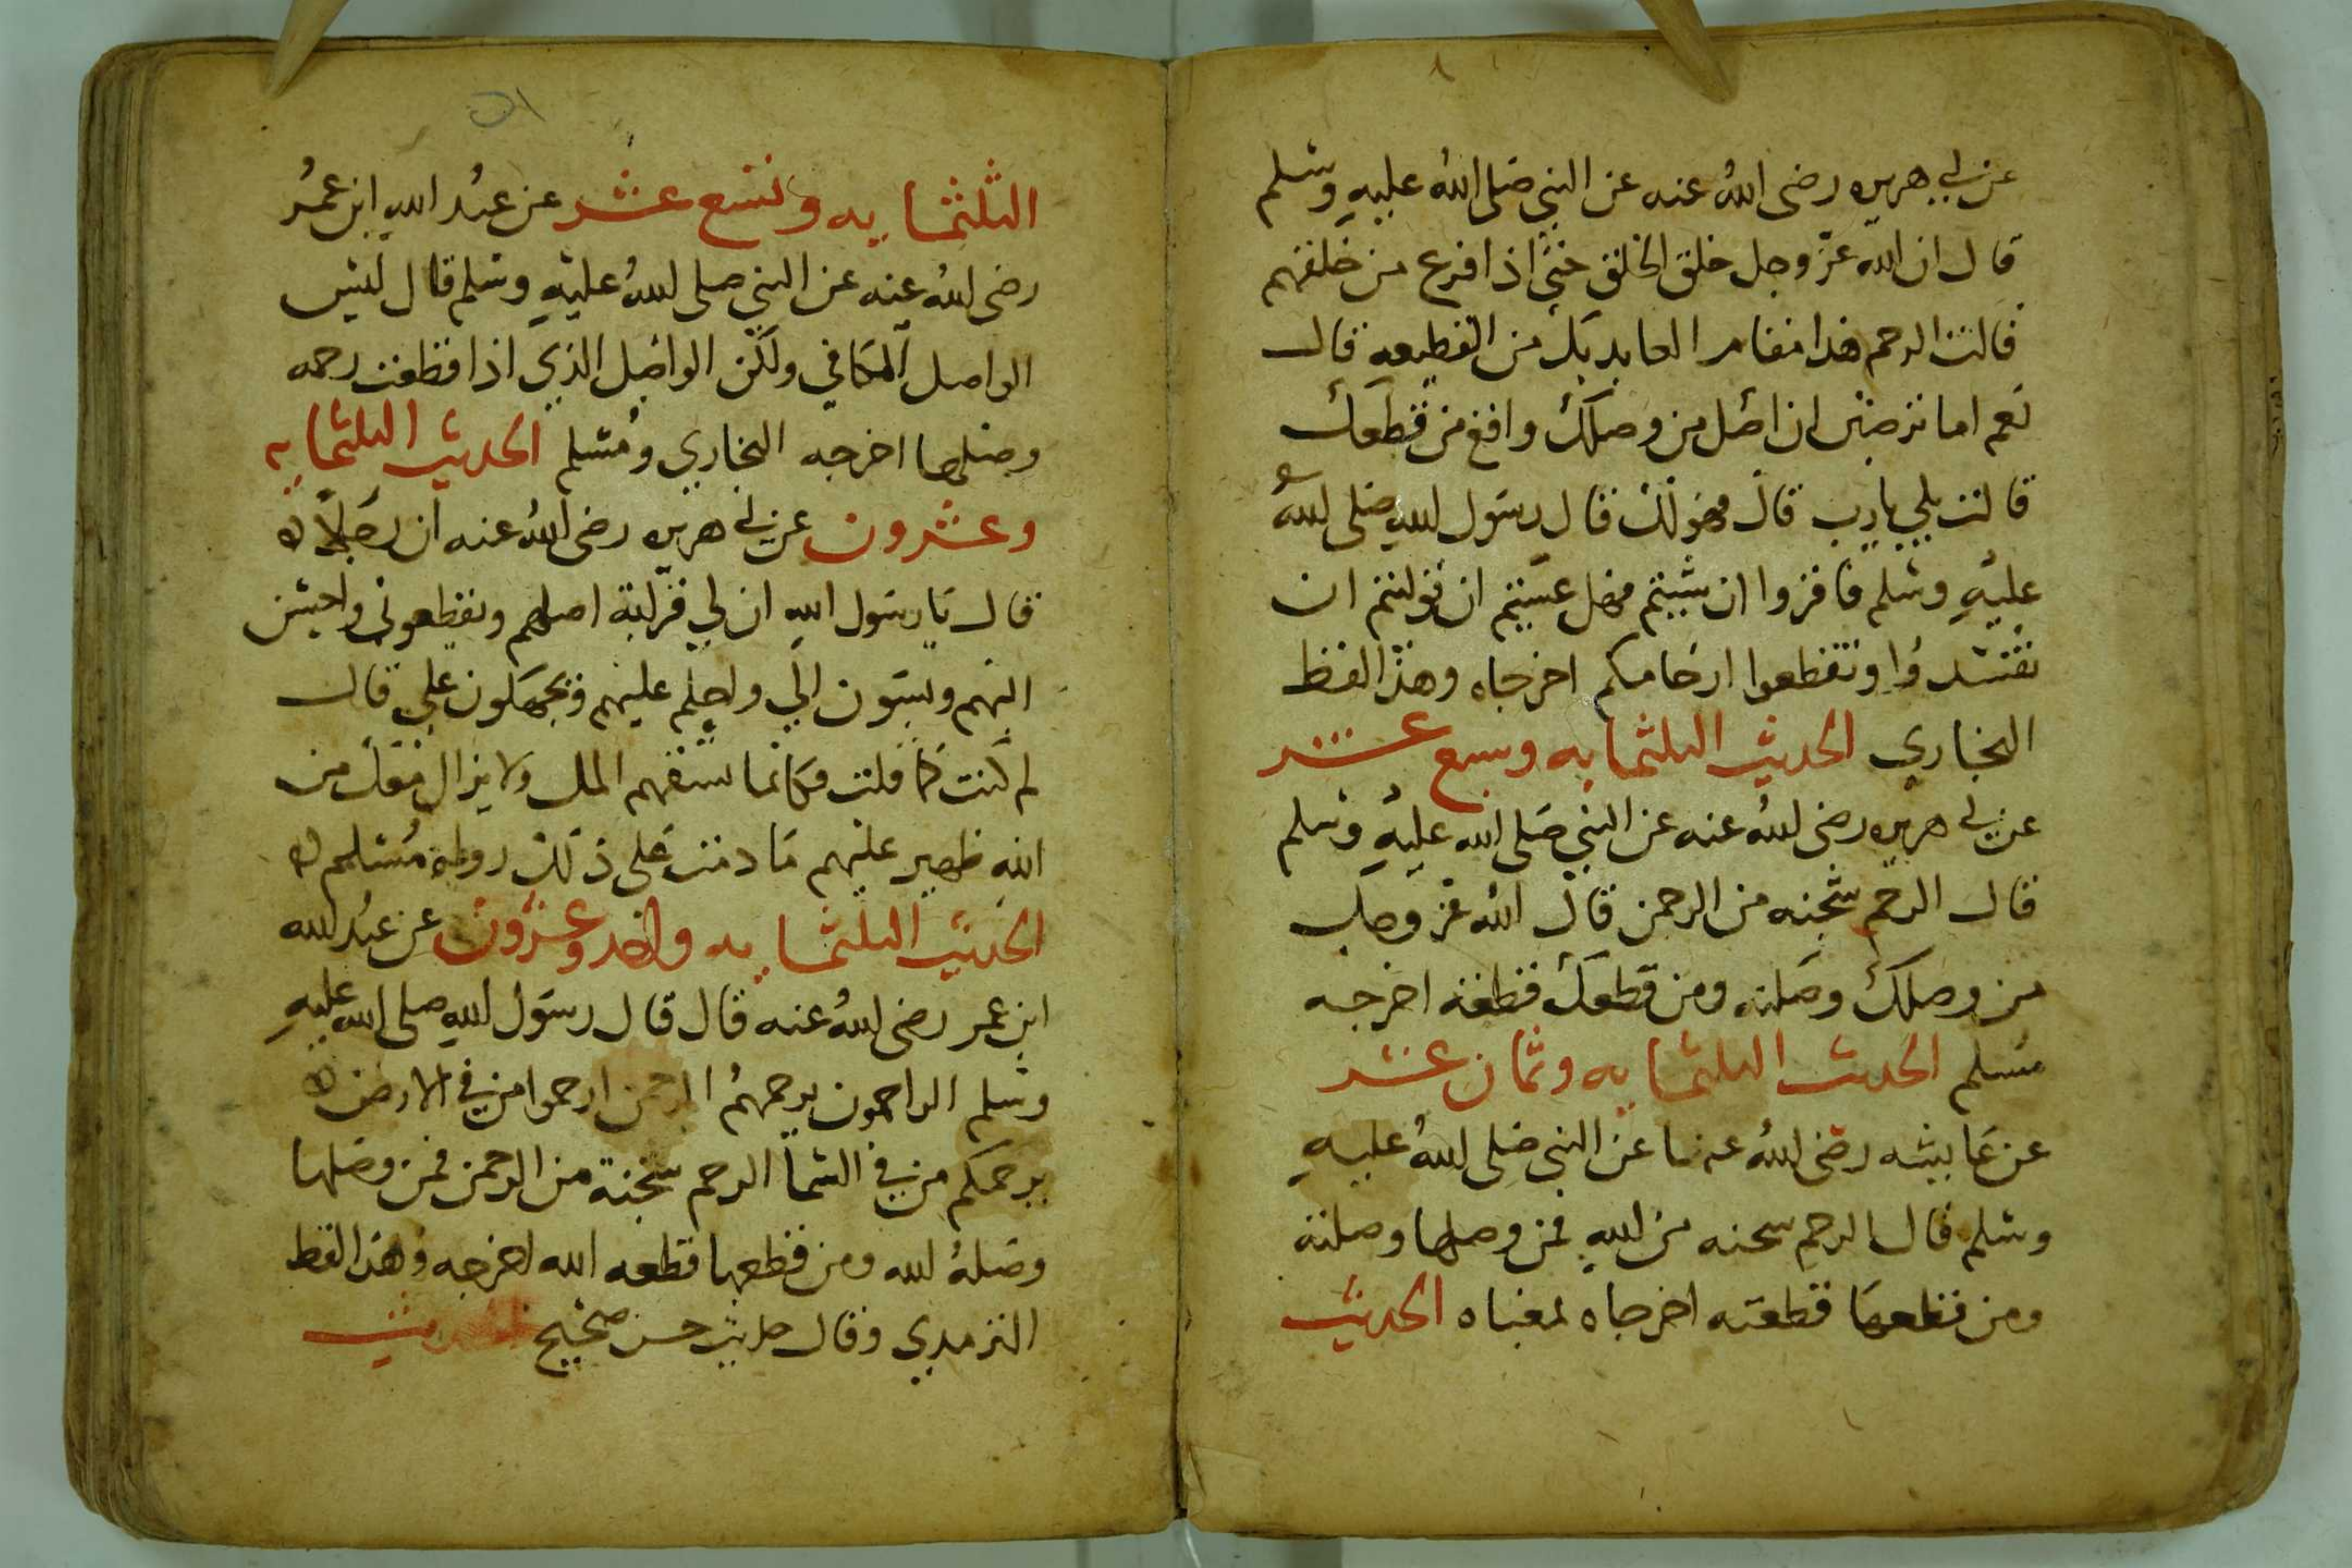 عن ابي هريره رضى الله عنه عن النبي صلى الله عليه وسلم
قال ان الله عز وجل خلق الخلق حتى اذا فرع من خلقهم
قالت الرحم هذا مقام العايد بك من القطيعه قال
نعم اما ترضين ان اصل من وصلك واقع من قطعك
قالت بلى يا رب قال فهو لك قال رسول الله صلى الله
عليه وسلم فاقروا ان شيتم فهل عسيتم ان توليتم ان
تفسدوا وتقطعوا ارحامكم اخرجاه وهذا لفظ
البخاري الحديث الثلثمايه وسبع عشر
عن ابي هريره رضى الله عنه عن النبي صلى الله عليه وسلم
قال الرحم شجنه من الرحمن قال الله عز وجل
من وصلك وصلته ومن قطعك قطعته اخرجه
مسلم الحديث الثلثمايه وثمان عشر
عن عايشه رضى الله عنها عن النبي صلى الله عليه
وسلم قال الرحم سجنه من الله فمن وصلها وصلته
ومن قطعها قطعته اخرجاه بمعناه الحديث
الثلثمايه وتسع عشر عن عبد الله ابن عمر
رضى الله عنه عن النبي صلى الله عليه وسلم قال ليس
الواصل المكافي ولكن الواصل الذي اذا قطعت رحمه
وصلها اخرجه البخاري ومسلم الحديث الثلثمايه
وعشرون عن ابي هريره رضى الله عنه ان رجلا
قال يا رسول الله ان لي قرابة اصلهم ويقطعوني واحسن
اليهم ويسيون الي واحلم عليهم ويجهلون علي قال
لم كنت كما قلت فكانما تسفهم المل ولا يزال معك من
الله ظهير عليهم ما دمت على ذلك رواه مسلم
الحديث الثلثمايه واحد وعشرون عن عبد الله
ابن عمر رضى الله عنه قال قال رسول الله صلى الله عليه
وسلم الراحمون يرحمهم الرحمن ارحموا من في الارض
يرحمكم من في السما الرحم سجنة من الرحمن فمن وصلها
وصله الله ومن قطعها قطعه الله اخرجه وهذا لفظ
الترمدي وقال حديث حسن صحيح الحديث